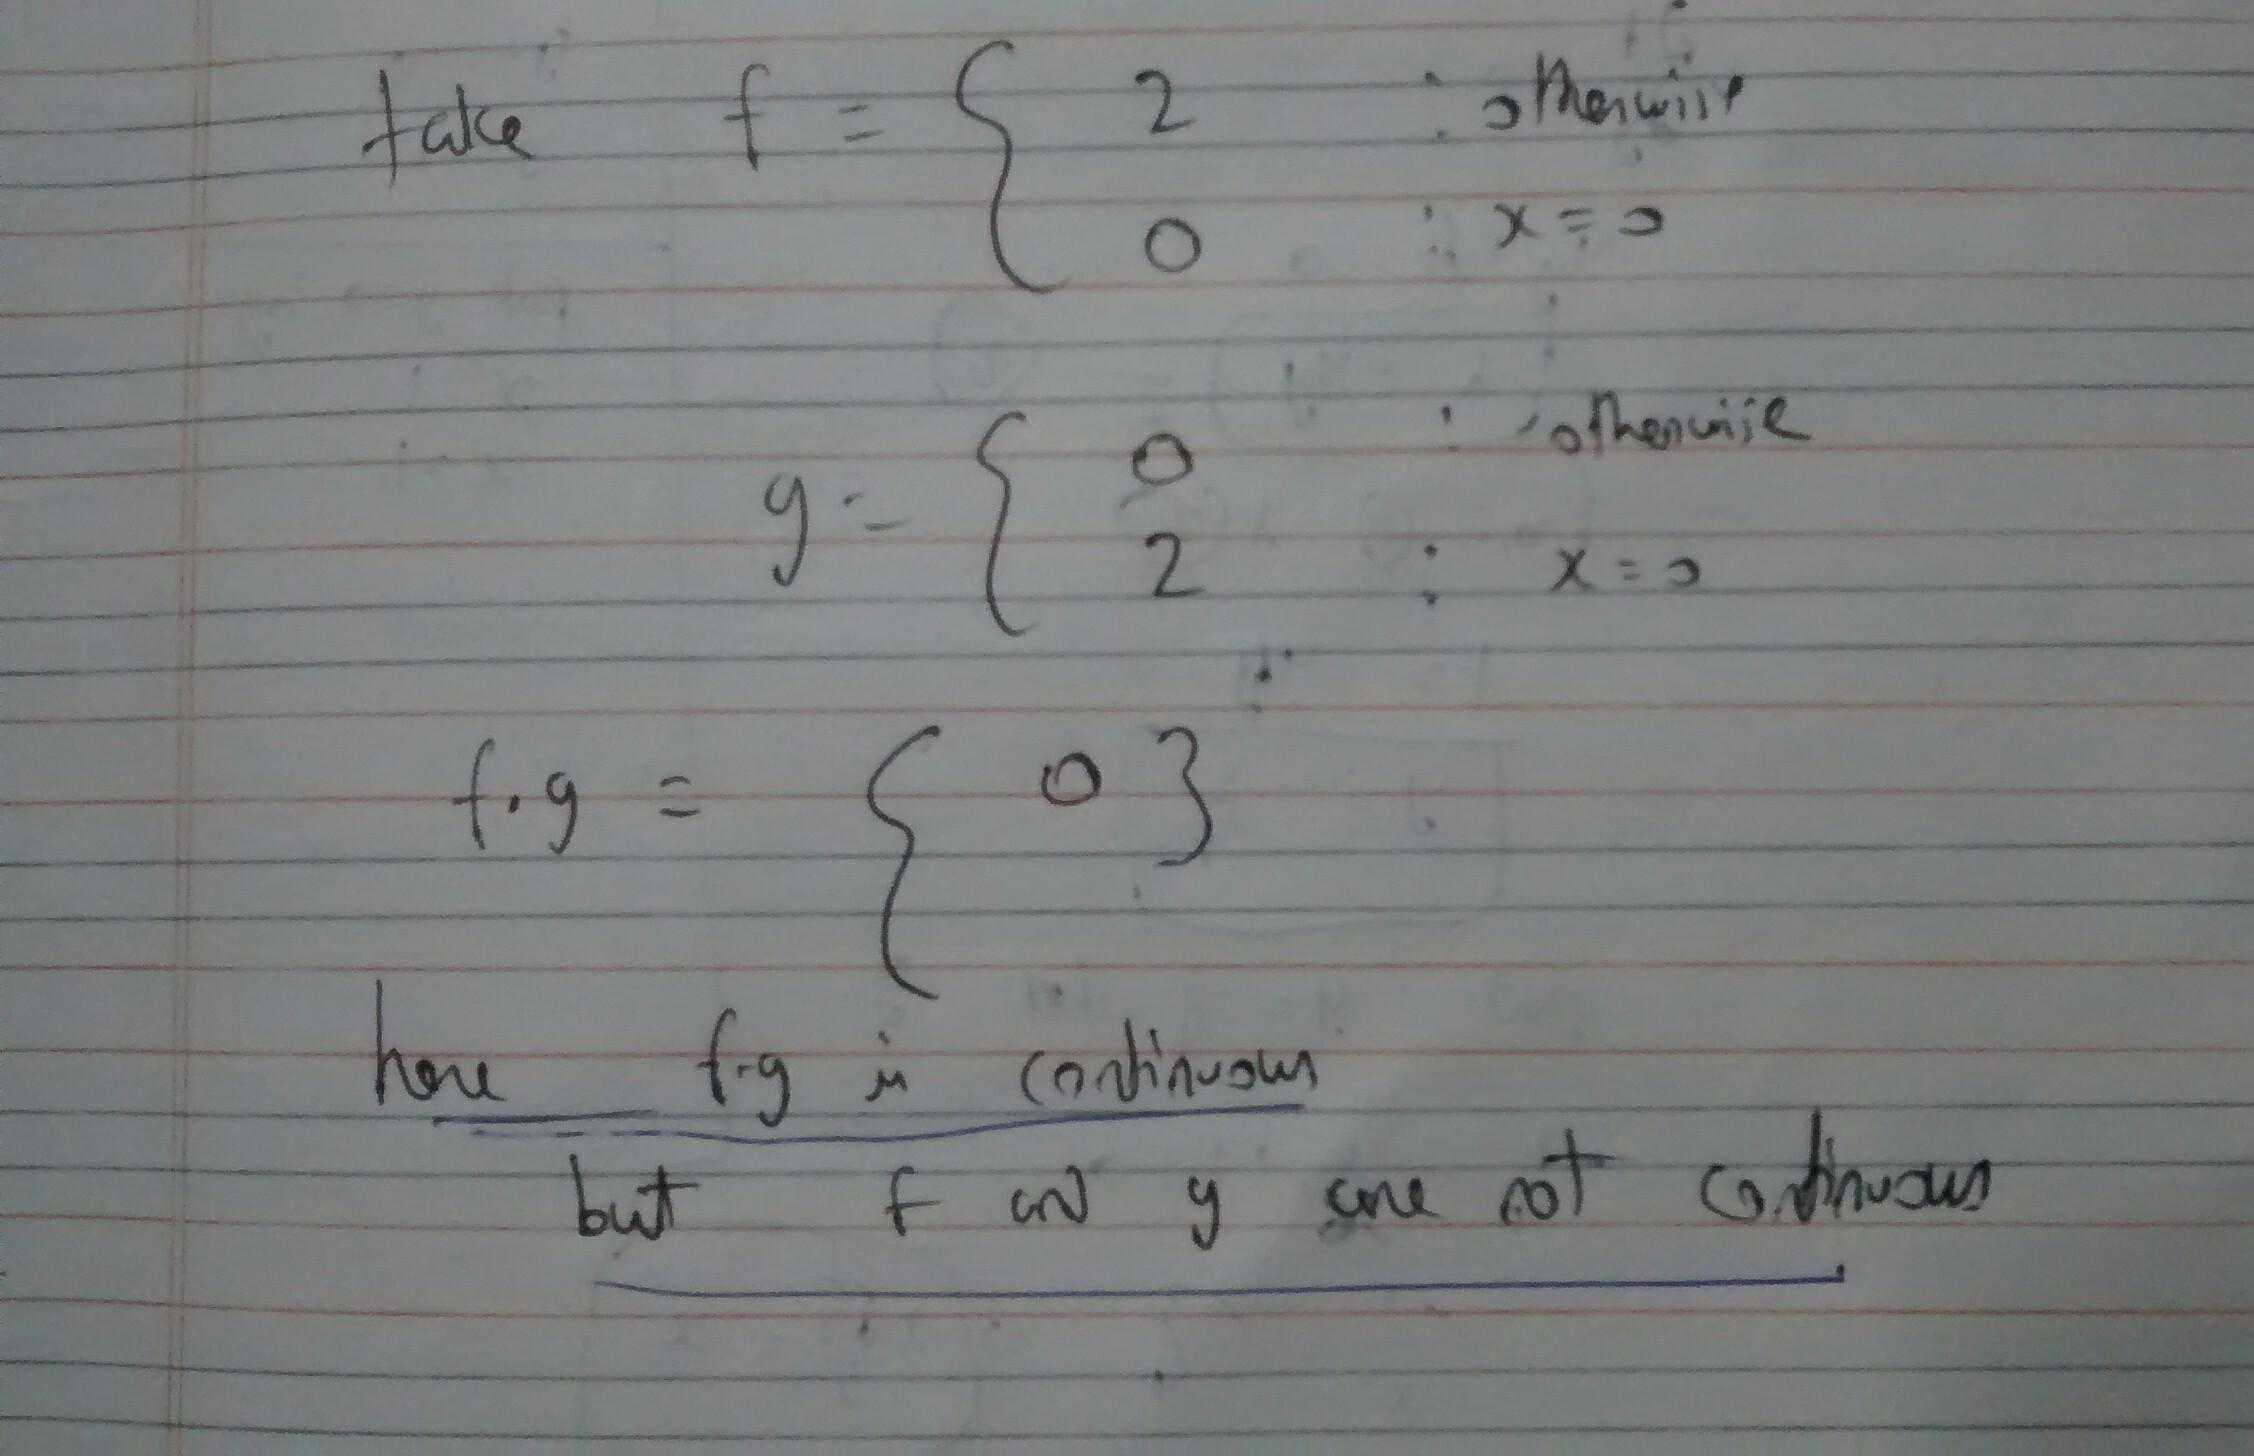 take f = { 2 : otherwise
0 : x = 0
g = { 0 : otherwise
2 : x = 0
f.g = { 0 }
here f.g is continuous
but f and g are not continuous